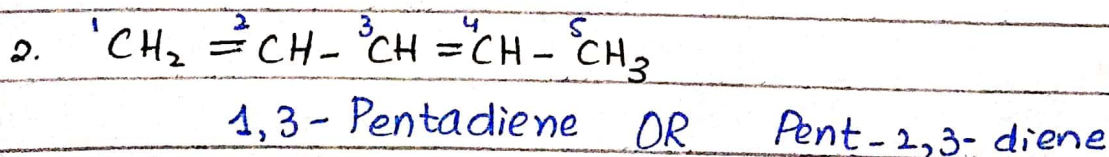 2. ¹CH₂ = ²CH - ³CH = ⁴CH - ⁵CH₃
1,3 - Pentadiene OR Pent - 2,3 - diene